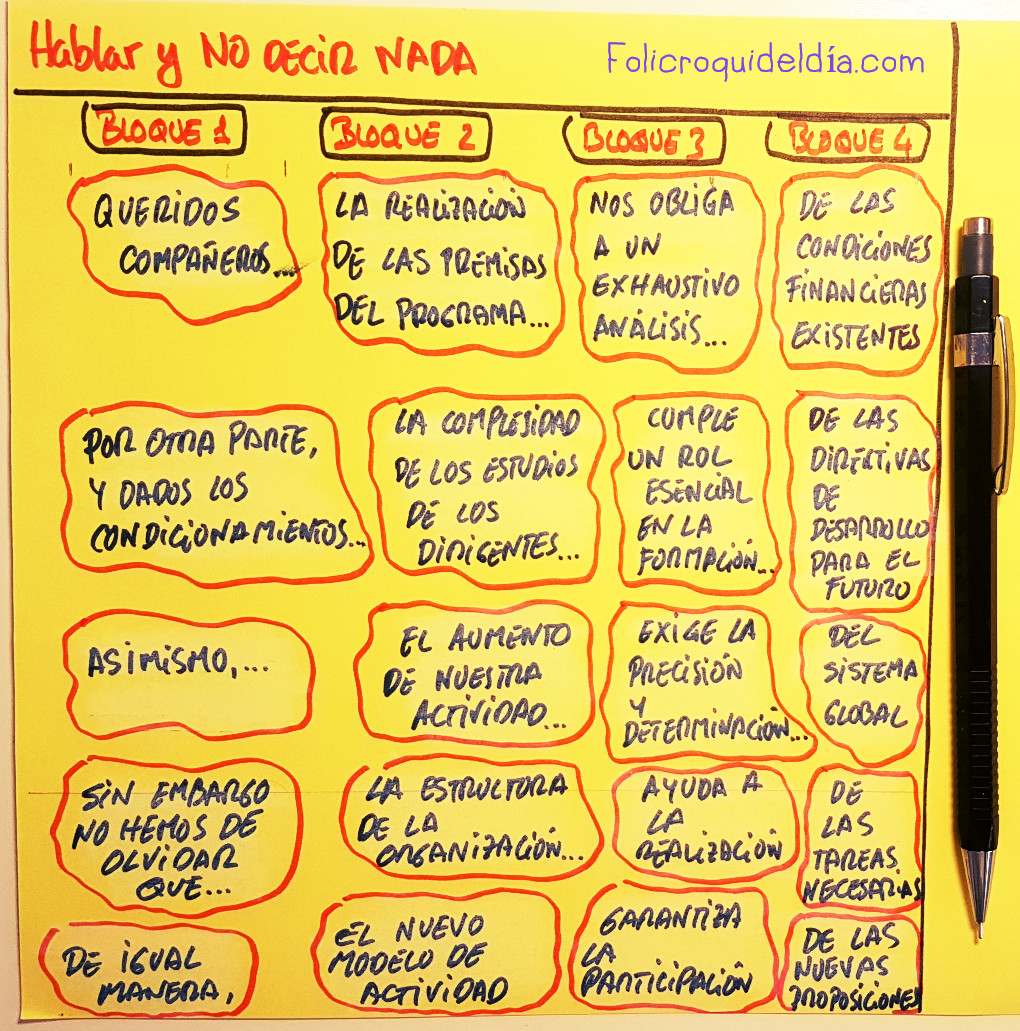 Hablar y NO DECIR NADA
Folicroquideldía.com
BLOQUE 1
BLOQUE 2
BLOQUE 3
BLOQUE 4
QUERIDOS
COMPAÑEROS...
LA REALIZACIÓN
DE LAS PREMISAS
DEL PROGRAMA...
NOS OBLIGA
A UN
EXHAUSTIVO
ANÁLISIS...
DE LAS
CONDICIONES
FINANCIERAS
EXISTENTES
POR OTRA PARTE,
Y DADOS LOS
CONDICIONAMIENTOS...
LA COMPLEJIDAD
DE LOS ESTUDIOS
DE LOS
DIRIGENTES...
CUMPLE
UN ROL
ESENCIAL
EN LA
FORMACIÓN...
DE LAS
DIRECTIVAS
DE
DESARROLLO
PARA EL
FUTURO
ASIMISMO,...
EL AUMENTO
DE NUESTRA
ACTIVIDAD...
EXIGE LA
PRECISIÓN
Y
DETERMINACIÓN...
DEL
SISTEMA
GLOBAL
SIN EMBARGO
NO HEMOS DE
OLVIDAR
QUE...
LA ESTRUCTURA
DE LA
ORGANIZACIÓN...
AYUDA A
LA
REALIZACIÓN
DE
LAS
TAREAS
NECESARIAS
DE IGUAL
MANERA,
EL NUEVO
MODELO DE
ACTIVIDAD
GARANTIZA
LA
PARTICIPACIÓN
DE LAS
NUEVAS
PROPOSICIONES